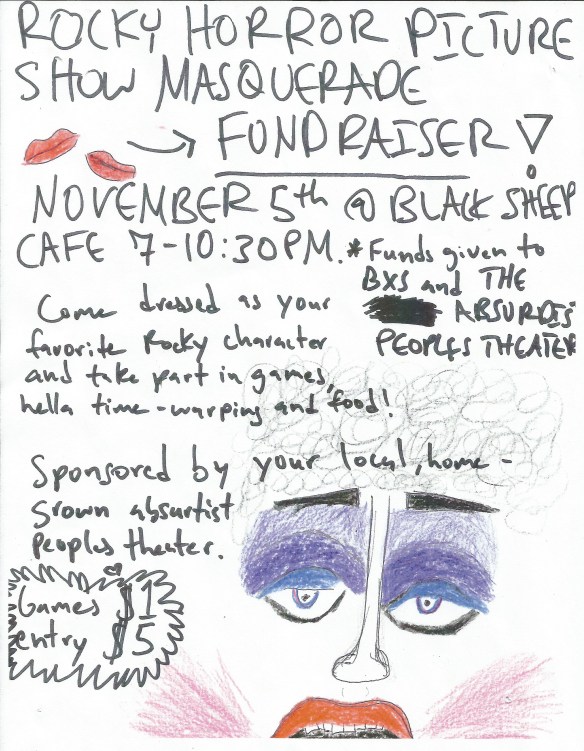 ROCKY HORROR PICTURE
SHOW MASQUERADE
→ FUNDRAISER!
NOVEMBER 5th @ BLACK SHEEP
CAFE 7-10:30PM.
*Funds given to
BXS and THE
ABSURDIS
PEOPLES THEATER
Come dressed as your
favorite Rocky character
and take part in games,
hella time-warping and food!
Sponsored by your local, home-
grown absurtist
peoples theater.
Games $1
entry $5